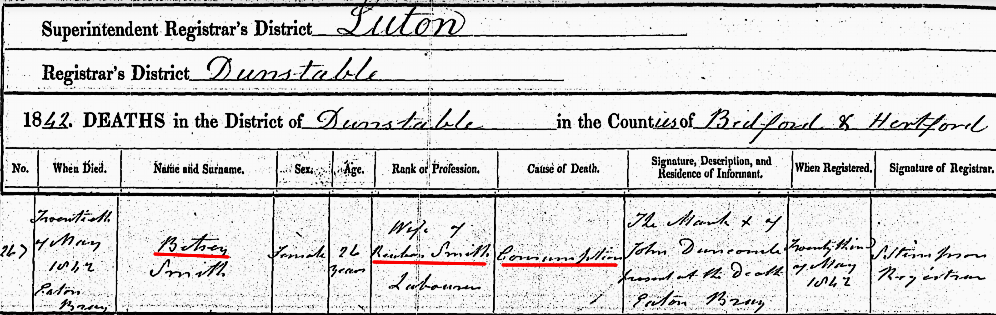 Superintendent Registrar's District Luton
Registrar's District Dunstable
1842. DEATHS in the District of Dunstable in the Counties of Bedford & Hertford
No. When Died. Name and Surname. Sex. Age. Rank or Profession. Cause of Death. Signature, Description, and Residence of Informant. When Registered. Signature of Registrar.
267
Twentieth
of May
1842
Eaton
Bray
Betsey
Smith
Female
26
years
Wife of
Reuben Smith
Labourer
Consumption
The Mark x of
John Duncombe
present at the Death
Eaton Bray
Twenty third
of May
1842
S Stimpson
Registrar